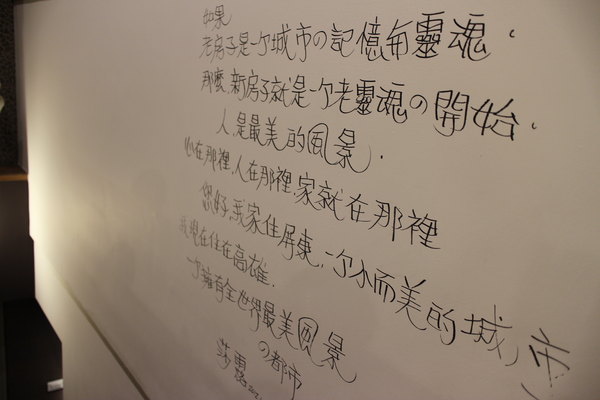 如果
老房子是一个城市の記憶與靈魂。
那麼,新房子就是一个老靈魂の開始。
人,是最美的風景。
心在那裡,人在那裡,家就在那裡
您好,我家住屏東,一个小而美的城市
我現在住在高雄,
一个擁有全世界最美風景
の都市
莎露